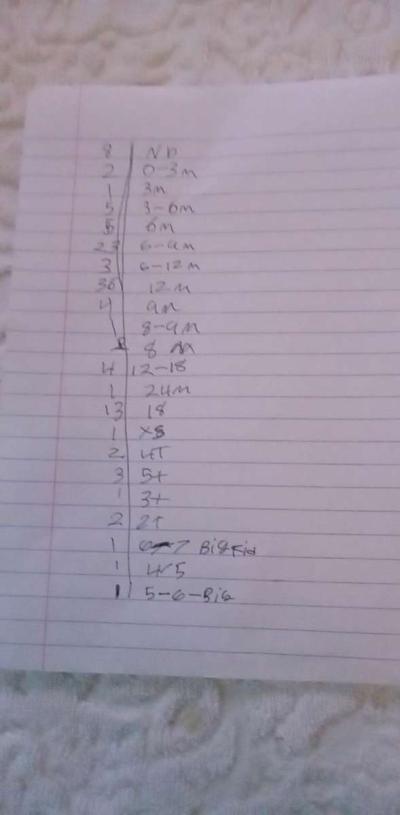 8 NB
2 0-3m
1 3m
5 3-6m
5 6m
23 6-9m
3 6-12m
36 12m
4 9m
8-9m
8 m
4 12-18
1 24m
13 18
1 XS
2 4T
3 5T
1 3T
2 2T
1 6-7 Big Kid
1 4/5
1 5-6-Big